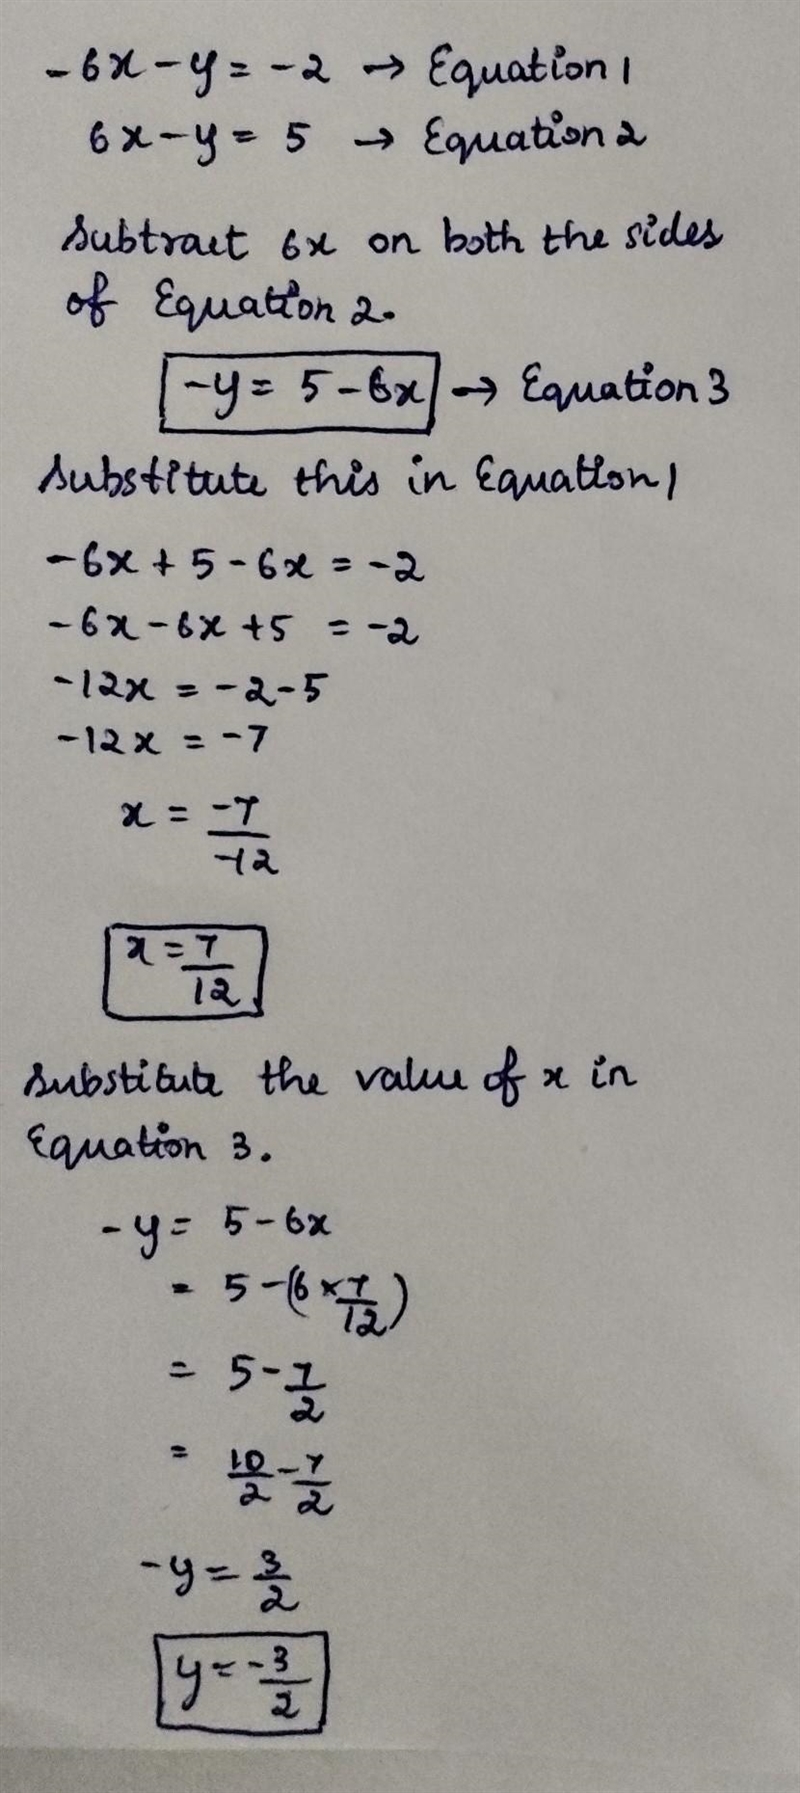 -6x - y = -2 → Equation 1
6x - y = 5 → Equation 2
Subtract 6x on both the sides
of Equation 2.
-y = 5 - 6x → Equation 3
Substitute this in Equation 1
-6x + 5 - 6x = -2
-6x - 6x + 5 = -2
-12x = -2 - 5
-12x = -7
x = -7/-12
x = 7/12
Substitute the value of x in
Equation 3.
-y = 5 - 6x
= 5 - (6 × 7/12)
= 5 - 7/2
= 10/2 - 7/2
-y = 3/2
y = -3/2